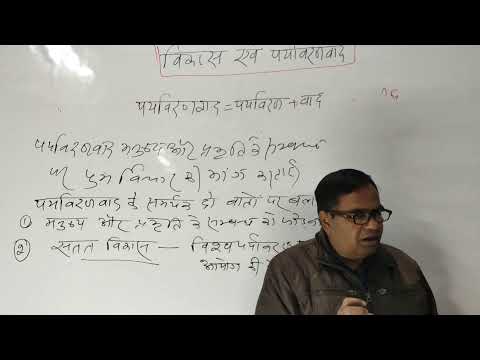 विकास एवं पर्यावरणवाद
पर्यावरणवाद = पर्यावरण + वाद
पर्यावरणवाद मनुष्य और प्रकृति के सम्बन्धों
पर पुनः विचार की मांग करता है
पर्यावरणवाद के समर्थक दो बातों पर बल
① मनुष्य और प्रकृति के सम्बन्ध को
② सतत विकास —
आयोग की